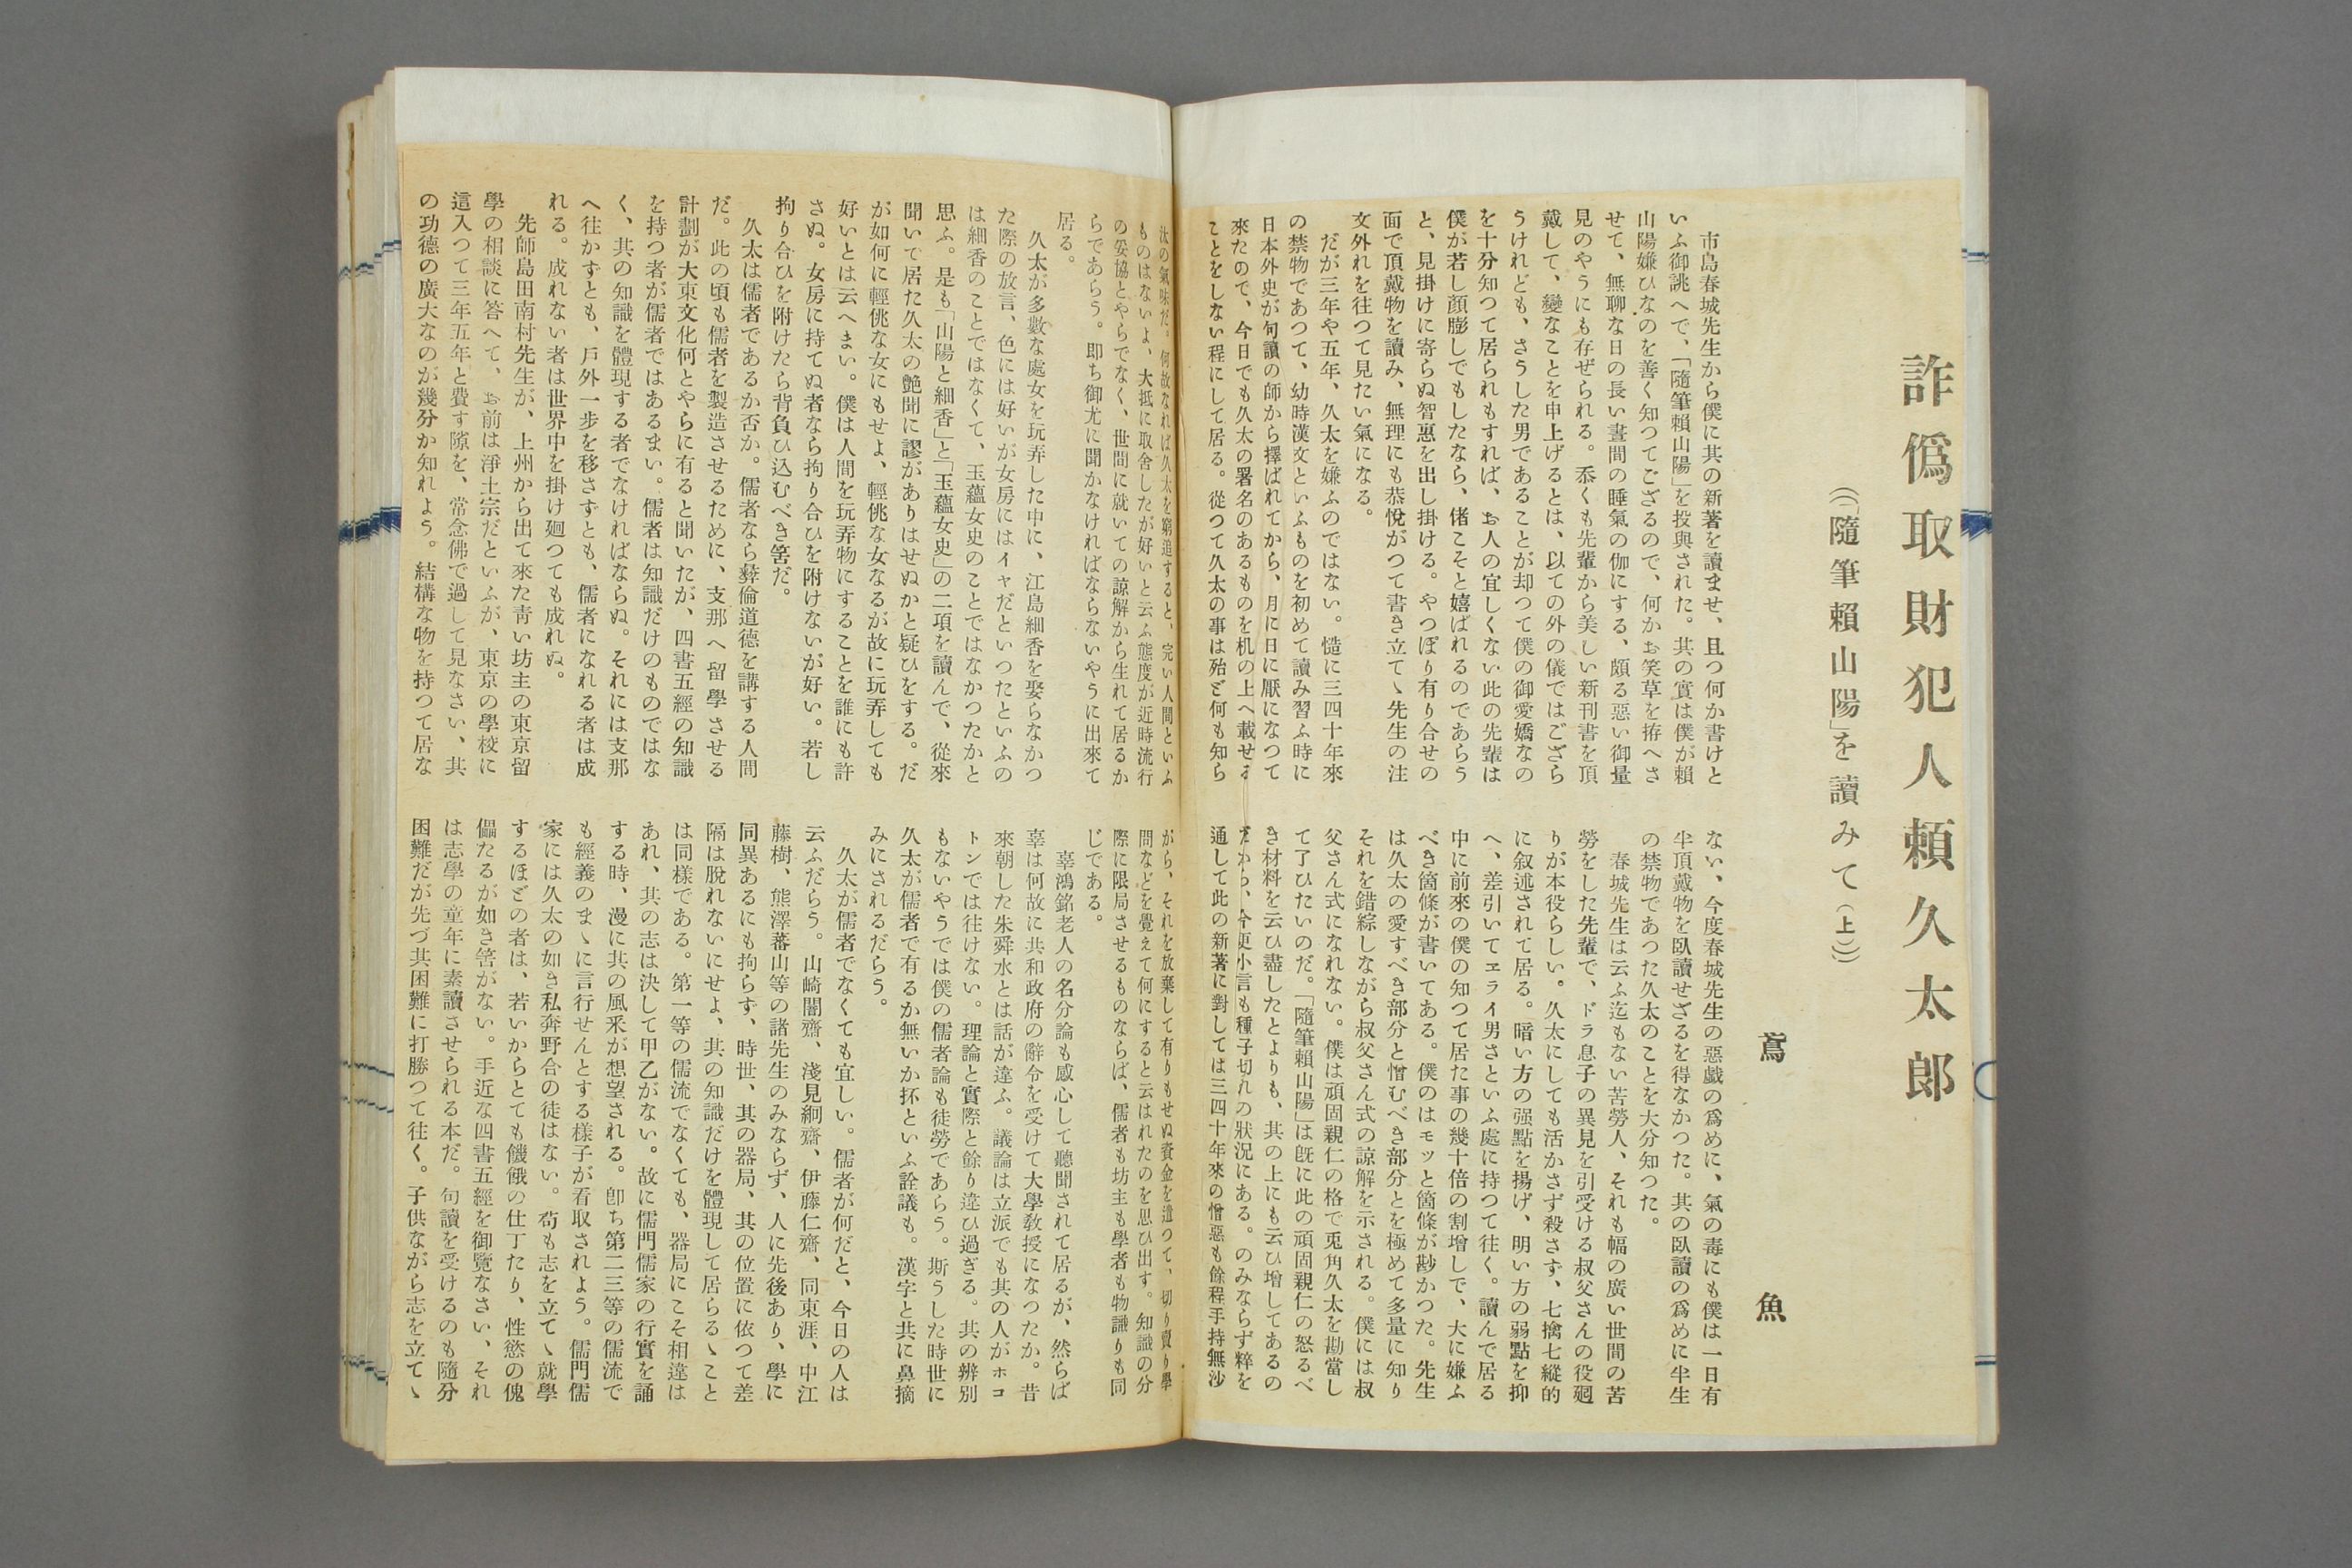 詐僞取財犯人賴久太郎
(『隨筆賴山陽』を讀みて(上))
鳶魚
市島春城先生から僕に其の新著を讀ませ、且つ何か書けと
いふ御誂へで、『隨筆賴山陽』を投與された。其の實は僕が賴
山陽嫌ひなのを善く知つてござるので、何かお笑草を拵へさ
せて、無聊な日の長い晝間の睡氣の伽にする、頗る惡い御量
見のやうにも存ぜられる。忝くも先輩から美しい新刊書を頂
戴して、變なことを申上げるとは、以ての外の儀ではござら
うけれども、さうした男であることが却つて僕の御愛嬌なの
を十分知つて居られもすれば、お人の宜しくない此の先輩は
僕が若し顏膨しでもしたなら、偖こそと嬉ばれるのであらう
と、見掛けに寄らぬ智惠を出し掛ける。やつぽり有り合せの
面で頂戴物を讀み、無理にも恭悅がつて書き立てゝ先生の注
文外れを往つて見たい氣になる。
だが三年や五年、久太を嫌ふのではない。慥に三四十年來
の禁物であつて、幼時漢文といふものを初めて讀み習ふ時に
日本外史が句讀の師から擇ばれてから、月に日に厭になつて
來たので、今日でも久太の署名のあるものを机の上へ載せる
ことをしない程にして居る。從つて久太の事は殆ど何も知ら
ない、今度春城先生の惡戲の爲めに、氣の毒にも僕は一日有
半頂戴物を臥讀せざるを得なかつた。其の臥讀の爲めに半生
の禁物であつた久太のことを大分知つた。
春城先生は云ふ迄もない苦勞人、それも幅の廣い世間の苦
勞をした先輩で、ドラ息子の異見を引受ける叔父さんの役廻
りが本役らしい。久太にしても活かさず殺さず、七擒七縱的
に叙述されて居る。暗い方の强點を揚げ、明い方の弱點を抑
へ、差引いてエライ男さといふ處に持つて往く。讀んで居る
中に前來の僕の知つて居た事の幾十倍の割增しで、大に嫌ふ
べき箇條が書いてある。僕のはモッと箇條が尠かつた。先生
は久太の愛すべき部分と憎むべき部分とを極めて多量に知り
それを錯綜しながら叔父さん式の諒解を示される。僕には叔
父さん式になれない。僕は頑固親仁の格で兎角久太を勘當し
て了ひたいのだ。『隨筆賴山陽』は旣に此の頑固親仁の怒るべ
き材料を云ひ盡したとよりも、其の上にも云ひ增してあるの
だから、今更小言も種子切れの狀況にある。のみならず粹を
通して此の新著に對しては三四十年來の憎惡も餘程手持無沙
汰の氣味だ。何故なれば久太を窮追すると、完い人間といふ
ものはないよ、大抵に取舍したが好いと云ふ態度が近時流行
の妥協とやらでなく、世間に就いての諒解から生れて居るか
らであらう。卽ち御尤に聞かなければならないやうに出來て
居る。
久太が多數な處女を玩弄した中に、江島細香を娶らなかつ
た際の放言、色には好いが女房にはイヤだといつたといふの
は細香のことではなくて、玉蘊女史のことではなかつたかと
思ふ。是も「山陽と細香」と「玉蘊女史」の二項を讀んで、從來
聞いで居た久太の艷聞に謬がありはせぬかと疑ひをする。だ
が如何に輕佻な女にもせよ、輕佻な女なるが故に玩弄しても
好いとは云へまい。僕は人間を玩弄物にすることを誰にも許
さぬ。女房に持てぬ者なら拘り合ひを附けないが好い。若し
拘り合ひを附けたら背負ひ込むべき筈だ。
久太は儒者であるか否か。儒者なら彝倫道德を講する人間
だ。此の頃も儒者を製造させるために、支那へ留學させる
計劃が大東文化何とやらに有ると聞いたが、四書五經の知識
を持つ者が儒者ではあるまい。儒者は知識だけのものではな
く、其の知識を體現する者でなければならぬ。それには支那
へ往かずとも、戶外一步を移さずとも、儒者になれる者は成
れる。成れない者は世界中を掛け廻つても成れぬ。
先師島田南村先生が、上州から出て來た靑い坊主の東京留
學の相談に答へて、お前は淨土宗だといふが、東京の學校に
這入つて三年五年と費す隙を、常念佛で過して見なさい、其
の功德の廣大なのが幾分か知れよう。結構な物を持つて居な
がら、それを放棄して有りもせぬ資金を遣つて、切り賣り學
問などを覺えて何にすると云はれたのを思ひ出す。知識の分
際に限局させるものならば、儒者も坊主も學者も物識りも同
じである。
辜鴻銘老人の名分論も感心して聽聞されて居るが、然らば
辜は何故に共和政府の辭令を受けて大學敎授になつたか。昔
來朝した朱舜水とは話が違ふ。議論は立派でも其の人がホコ
トンでは往けない。理論と實際と餘り違ひ過ぎる。其の辨別
もないやうでは僕の儒者論も徒勞であらう。斯うした時世に
久太が儒者で有るか無いか抔といふ詮議も。漢字と共に鼻摘
みにされるだらう。
久太が儒者でなくても宜しい。儒者が何だと、今日の人は
云ふだらう。山崎闇齋、淺見絅齋、伊藤仁齋、同東涯、中江
藤樹、熊澤蕃山等の諸先生のみならず、人に先後あり、學に
同異あるにも拘らず、時世、其の器局、其の位置に依つて差
隔は脫れないにせよ、其の知識だけを體現して居らるゝこと
は同樣である。第一等の儒流でなくても、器局にこそ相違は
あれ、其の志は決して甲乙がない。故に儒門儒家の行實を誦
する時、漫に其の風釆が想望される。卽ち第二三等の儒流で
も經義のまゝに言行せんとする樣子が看取されよう。儒門儒
家には久太の如き私奔野合の徒はない。苟も志を立てゝ就學
するほどの者は、若いからとても饑餓の仕丁たり、性慾の傀
儡たるが如き筈がない。手近な四書五經を御覽なさい、それ
は志學の童年に素讀させられる本だ。句讀を受けるのも隨分
困難だが先づ其困難に打勝つて往く。子供ながら志を立てゝ